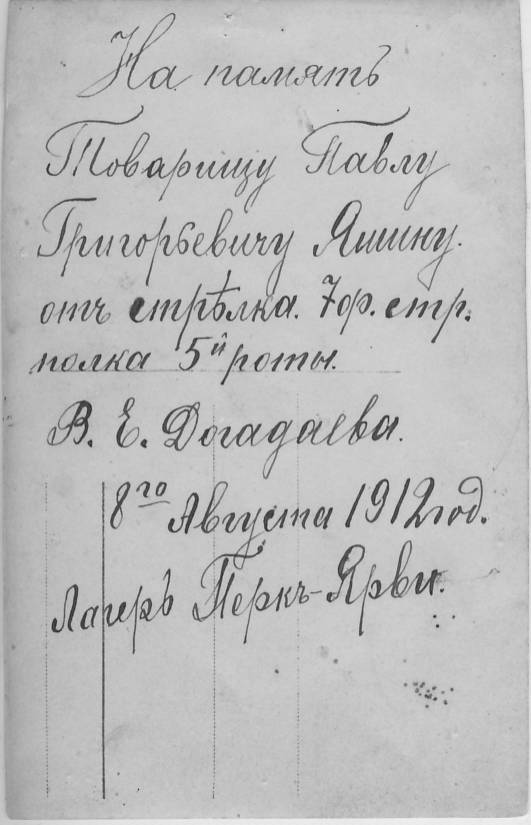 На память
Товарищу Павлу
Григорьевичу Яшину.
отъ стрѣлка. 7 ф. стр.
полка 5й роты.
В. Е. Догадаева.
8го Августа 1912 год.
Лагерь Перкъ-Ярви.